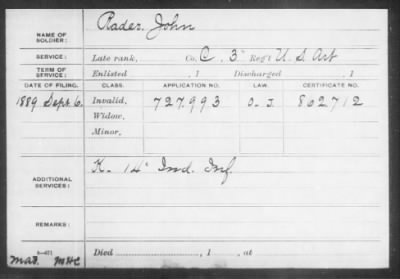 NAME OF SOLDIER: Rader, John
SERVICE: Late rank, Co. C, 3" Reg't U. S. Art
TERM OF SERVICE: Enlisted , 1 Discharged , 1
DATE OF FILING. CLASS. APPLICATION NO. LAW. CERTIFICATE NO.
1889 Sept. 6. Invalid, 727.993 O. J. 802712
Widow,
Minor,
ADDITIONAL SERVICES: K- 14" Ind. Inf.
REMARKS:
3—471 Died , 1 , at
MHC